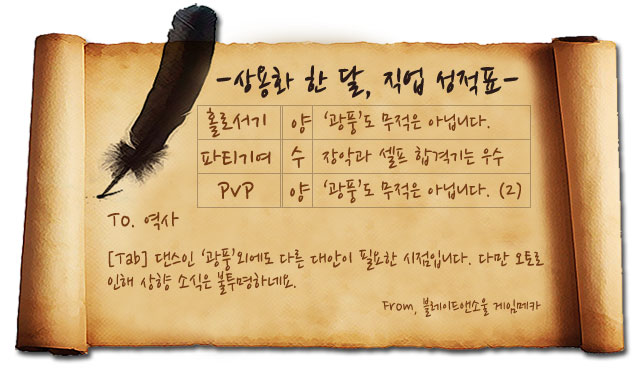 -상용화 한 달, 직업 성적표-
홀로서기 양 '광풍'도 무적은 아닙니다.
파티기여 수 장악과 셀프 합격기는 우수
PvP 양 '광풍'도 무적은 아닙니다. (2)
To. 역사
[Tab] 댄스인 '광풍'외에도 다른 대안이 필요한 시점입니다. 다만 오토로
인해 상향 소식은 불투명하네요.
From. 블레이드앤소울 게임메카